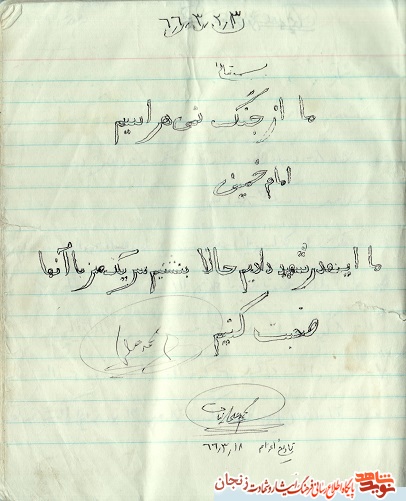 ۶۶٫۳٫۲٫۳
بسمه تعالی
ما از جنگ نمی هراسیم
امام خمینی
ما اینقدر شهید دادیم حالا بنشینیم سر یک میز با آنها
صحبت کنیم
تاریخ اعزام ۶۶٫۳٫۱۸
نوید شاهد
پایگاه اطلاع رسانی فرهنگ ایثار و شهادت زنجان